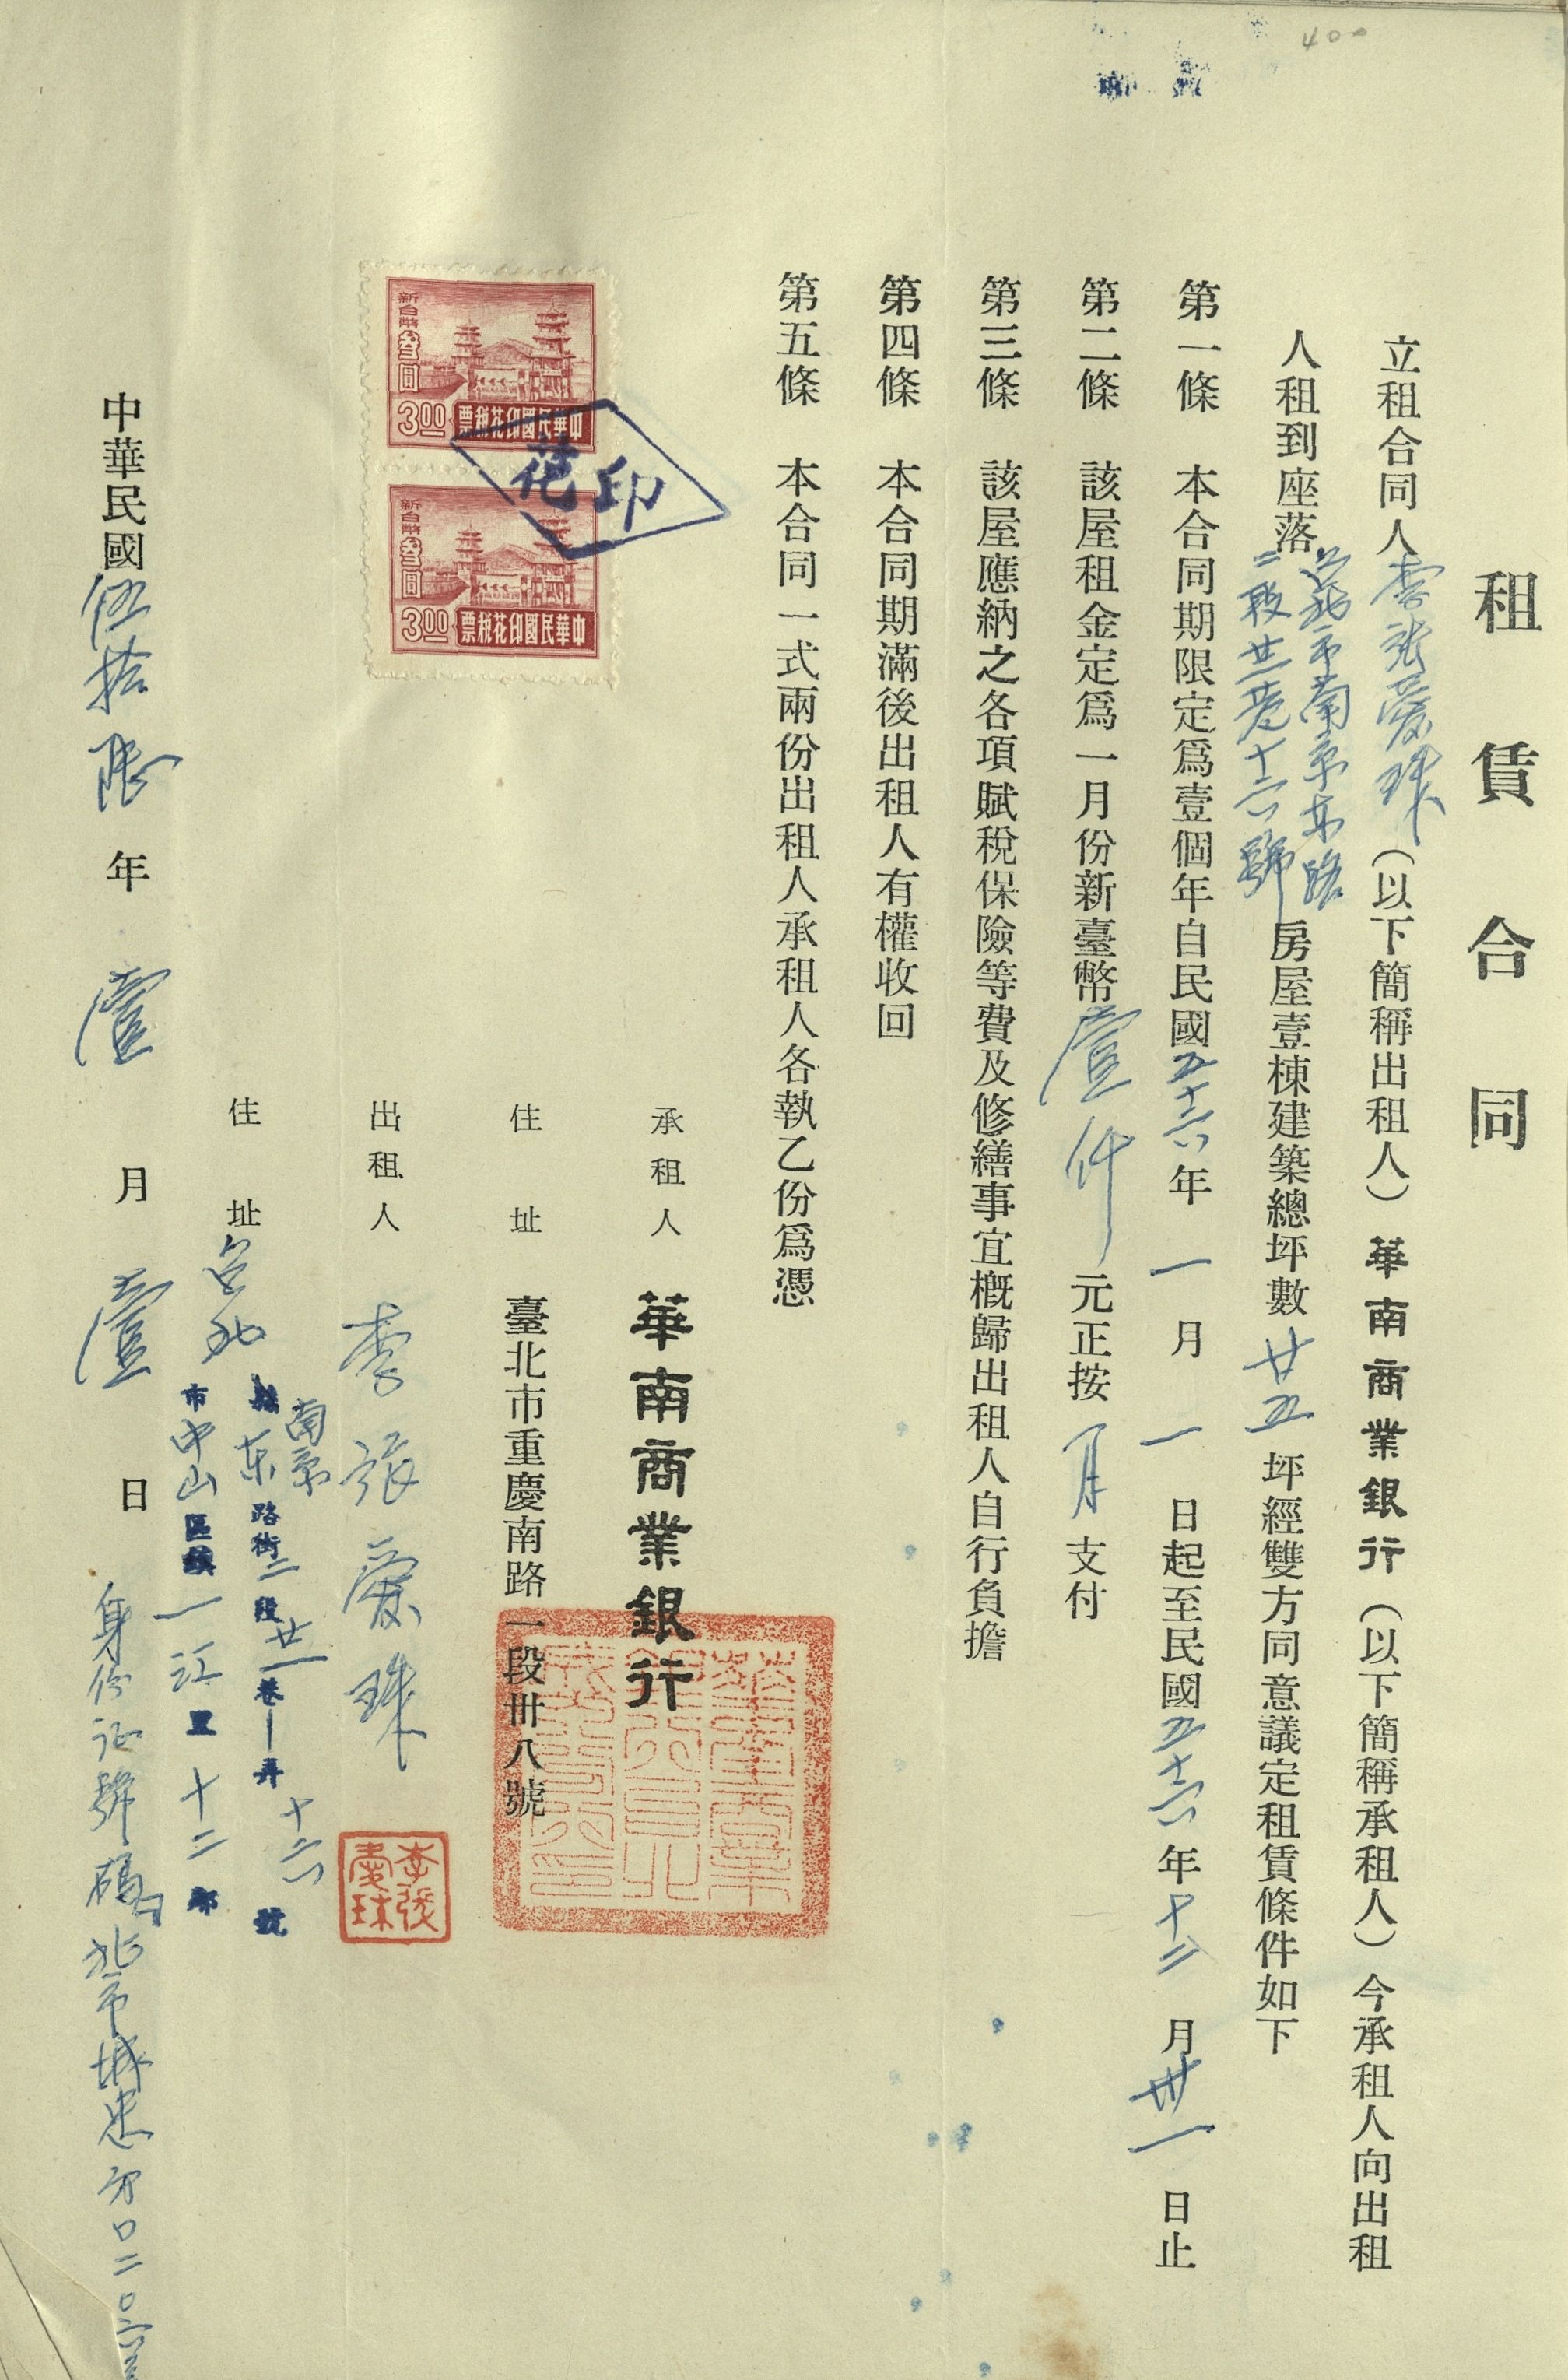 400
租賃合同
立租合同人李張愛珠（以下簡稱出租人）華南商業銀行（以下簡稱承租人）今承租人向出租
人租到座落台北市南京东路二段廿一巷十六號房屋壹棟建築總坪數廿五坪經雙方同意議定租賃條件如下
第一條　本合同期限定爲壹個年自民國五十六年一月一日起至民國五十六年十二月卅一日止
第二條　該屋租金定爲一月份新臺幣壹仟元正按月支付
第三條　該屋應納之各項賦稅保險等費及修繕事宜槪歸出租人自行負擔
第四條　本合同期滿後出租人有權收回
第五條　本合同一式兩份出租人承租人各執乙份爲憑
新台幣叁圓
3.00
中華民國印花稅票
新台幣叁圓
3.00
中華民國印花稅票
印花
承租人　華南商業銀行
住址　臺北市重慶南路一段卅八號
出租人　李張愛珠
李張愛珠
住址　台北縣市
南京东路街二段廿一巷一弄十六號
中山區鎮一江里十二鄰
中華民國伍拾陸年壹月壹日
身份证號碼北市城忠字口二〇